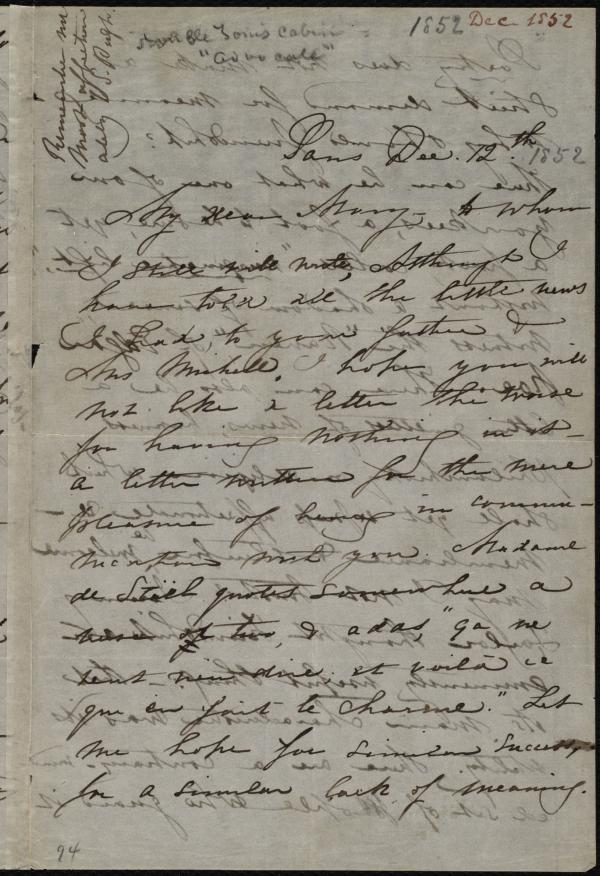 Remember me
most affection
ately to S. Pugh.
Tom's Cabin
"Advocate"
1852
Dec 1852
Paris Dec. 12.th
1852
My dear Mary - to whom
I still will write, Although I
have told all the little news
I had, to your father &
Mrs Michell, I hope you will
not like a letter the worse
for having nothing in it -
a letter written for the mere
pleasure of being in commu-
nication with you. Madame
de Stäel quotes somewhere a
verse or two, & adds, "ça ne
veut rien dire, et voilà ce
qui en fait le charme." Let
me hope for similar success,
for a similar lack of meaning.
94